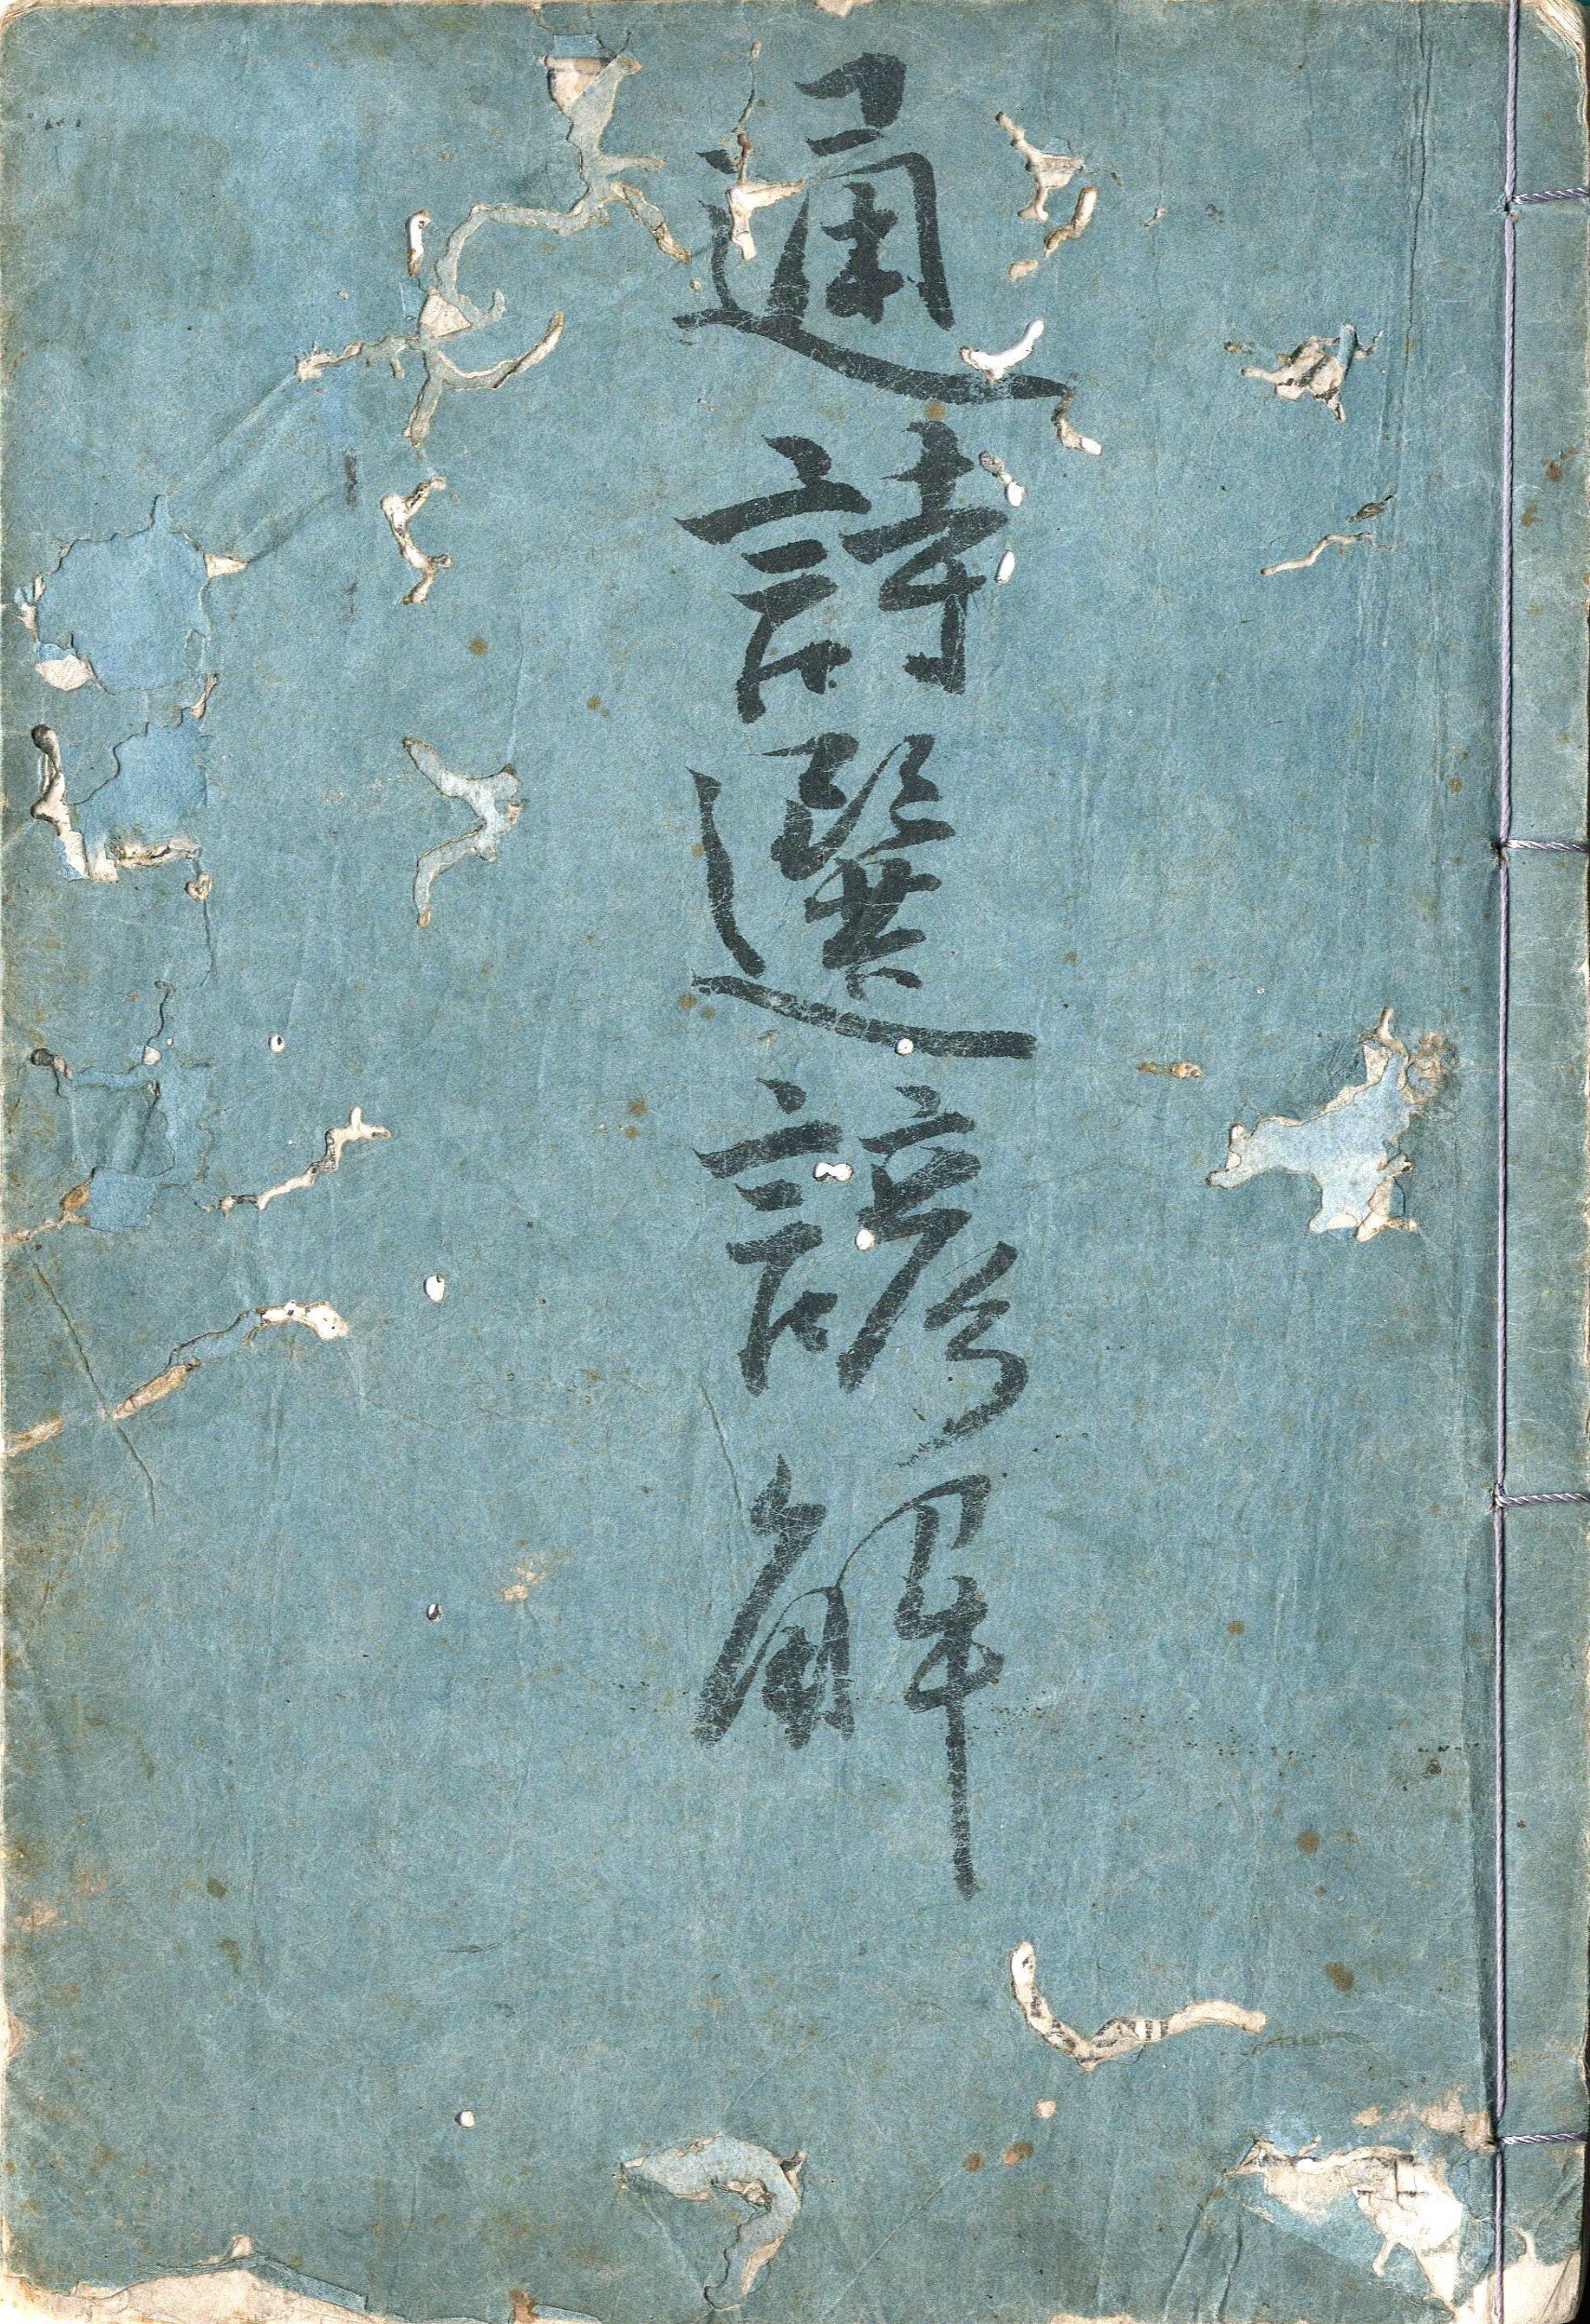 通詩選諺解